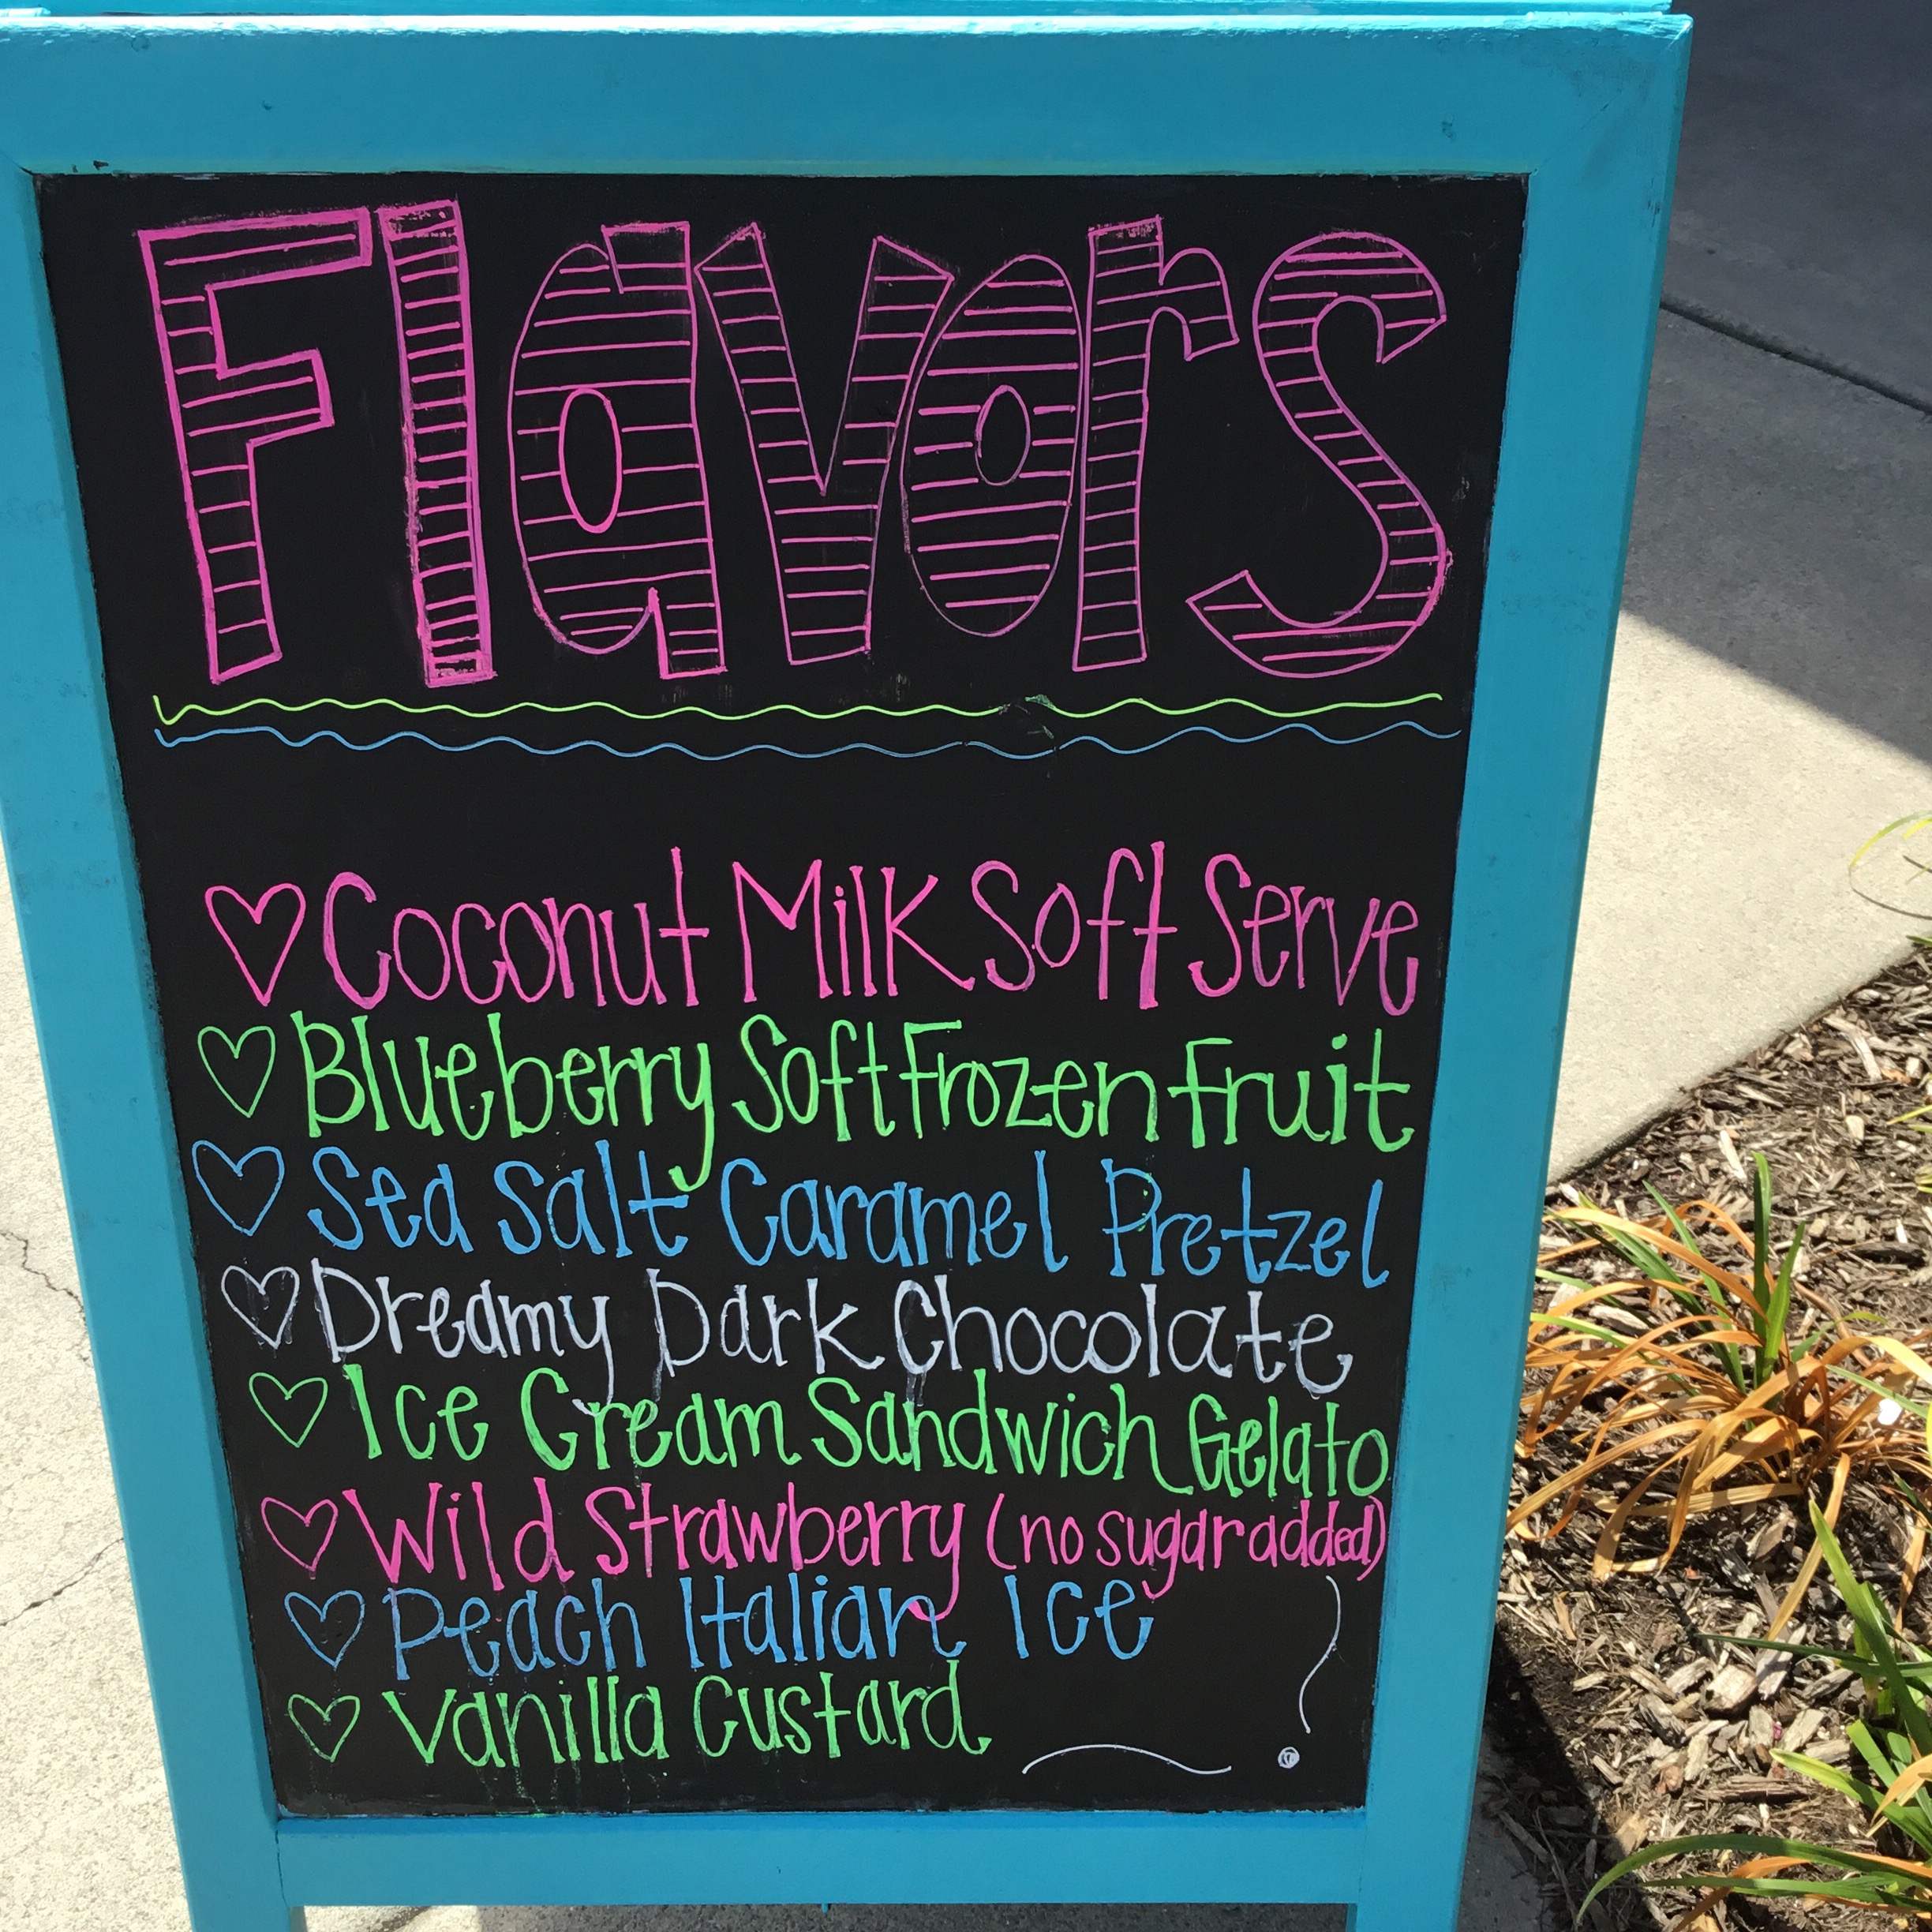 Flavors
Coconut Milk Soft Serve
Blueberry Soft Frozen Fruit
Sea Salt Caramel Pretzel
Dreamy Dark Chocolate
Ice Cream Sandwich Gelato
Wild Strawberry (no sugar added)
Peach Italian Ice
Vanilla Custard